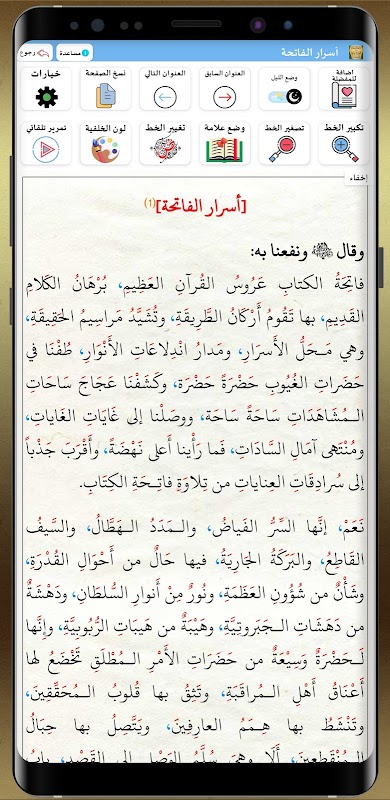 أسرار الفاتحة
مساعدة
رجوع
اضافة للمفضلة
وضع الليل
العنوان السابق
العنوان التالي
نسخ الصفحة
خيارات
تكبير الخط
تصغير الخط
وضع علامة
تغيير الخط
لون الخلفية
تمرير تلقائي
إخفاء
[أسرار الفاتحة](١)
وقال ﷺ ونفعنا به:
فاتِحَةُ الكتابِ عَرُوسُ القُرآنِ العَظِيمِ، بُرْهَانُ الكَلامِ
القَدِيمِ، بها تَقُومُ أَرْكَانُ الطَّرِيقَةِ، وتُشَيَّدُ مَراسِيمُ الحَقِيقَةِ،
وهي مَـحَلُّ الأَسرَارِ، ومَدارُ انْدِلاعَاتِ الأَنْوَارِ، طُفْنَا في
حَضَراتِ الغُيُوبِ حَضْرَةً حَضْرَة، وكَشَفْنَا عَجَاجَ سَاحَاتِ
الـمُشَاهَدَاتِ سَاحَةً سَاحَة، ووَصَلْنا إلى غَايَاتِ الغَايَاتِ،
ومُنْتَهى آمَالِ السَّادَاتِ، فَما رَأَينا أَعلى نَهْضَةً، وأَقْرَبَ جَذْباً
إلى سُرادِقَاتِ العِناياتِ من تِلاوَةِ فاتِـحَةِ الكِتَابِ.
نَعَمْ، إنَّها السِّرُّ الفَياضُ، والــمَدَدُ الـهَطَّالُ، والسَّيفُ
القَاطِعُ، والبَرَكَةُ الجَارِيَةُ، فيها حَالٌ من أَحْوَالِ القُدْرَةِ،
وشَأْنٌ من شُؤُونِ العَظَمَةِ، ونُورٌ مِنْ أَنوارِ السُّلطَانِ، ودَهْشَةٌ
من دَهَشَاتِ الـجَبَروتِيَّةِ، وهَيْبَةٌ من هَيبَاتِ الرُّبوبِيَّةِ، وإنَّها
لَـحَضْرَةٌ وَسِيعَةٌ من حَضَراتِ الأَمرِ الـمُطْلَقِ تَخْضَعُ لها
أَعْنَاقُ أَهْلِ الـمُرَاقَبَةِ، وتَثِقُ بها قُلوبُ الـمُحَقِّقينَ،
وتَنْشَطُ بها هِـمَمُ العارِفينَ، ويَتَّصِلُ بها حِبَالُ
الـمُنْقَطِعينَ، أَلَا وهِيَ سُلَّمُ الوَصْلِ إلى القَصْدِ، بابُ